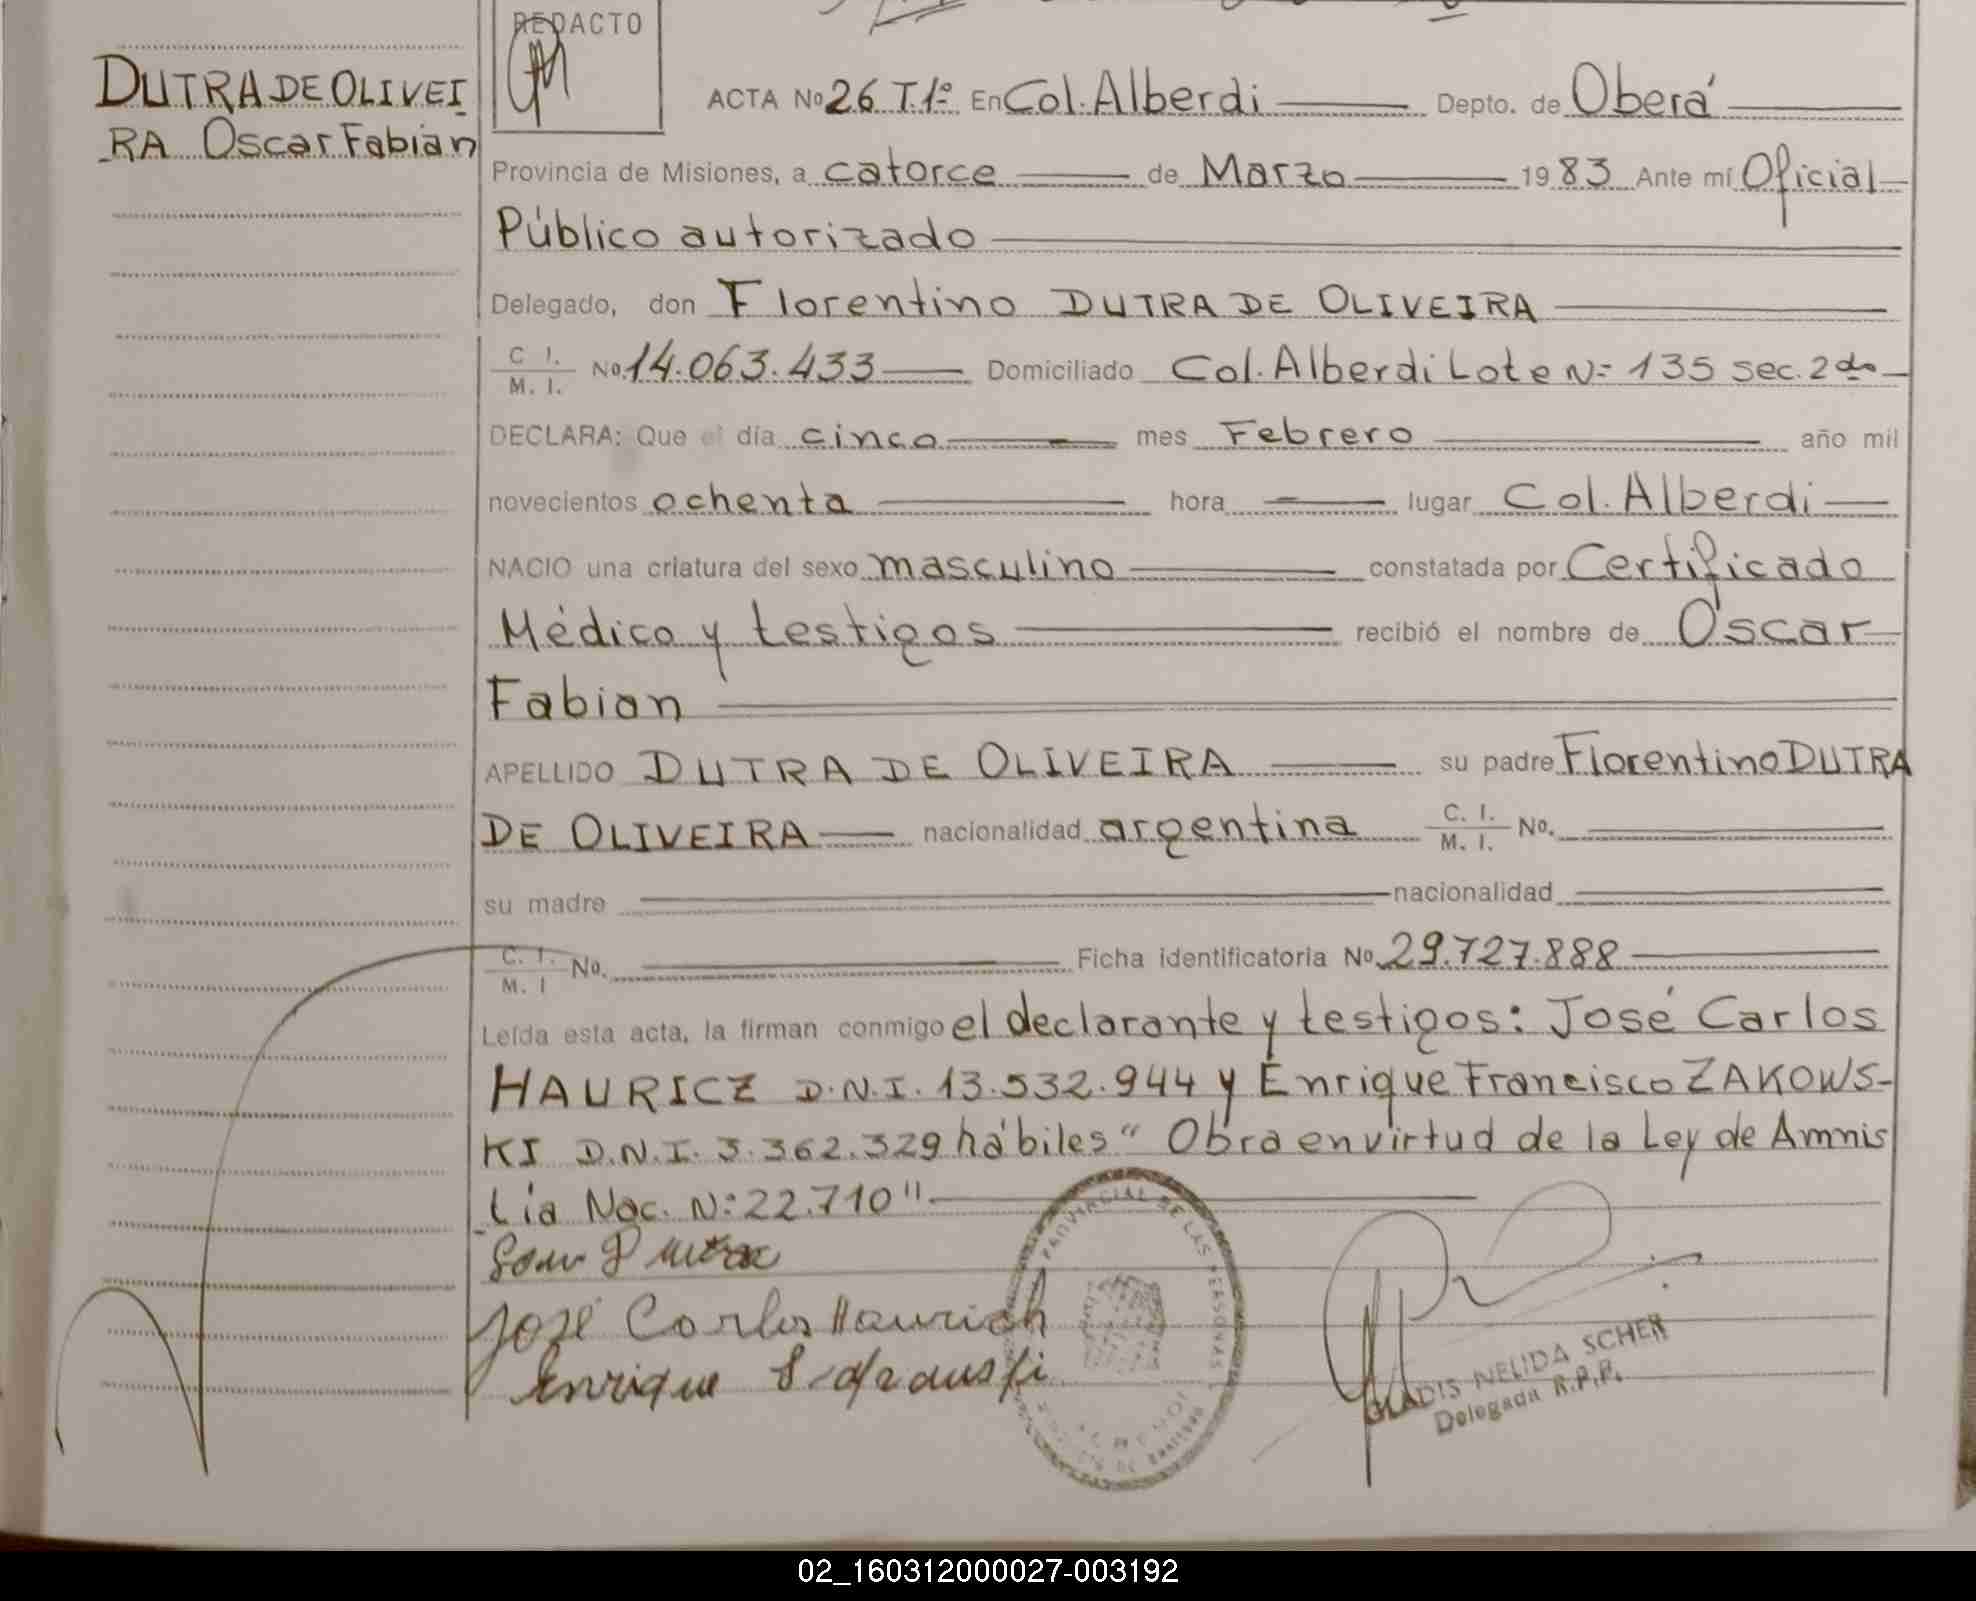 REDACTO
DUTRA DE OLIVEI
RA Oscar Fabian
ACTA No 26 T.1º En Col. Alberdi Depto. de Oberá
Provincia de Misiones, a catorce de Marzo 1983 Ante mí Oficial
Público autorizado
Delegado, don Florentino DUTRA DE OLIVEIRA
C. I. / M. I. No. 14.063.433 Domiciliado Col. Alberdi Lote N= 135 sec. 2da
DECLARA: Que el día cinco mes Febrero año mil
novecientos ochenta hora lugar Col. Alberdi
NACIO una criatura del sexo masculino constatada por Certificado
Médico y testigos recibió el nombre de Oscar
Fabian
APELLIDO DUTRA DE OLIVEIRA su padre Florentino DUTRA
DE OLIVEIRA nacionalidad argentina C. I. / M. I. No.
su madre nacionalidad
C. I. / M. I No. Ficha identificatoria No. 29.727.888
Leída esta acta, la firman conmigo el declarante y testigos: José Carlos
HAURICZ D.N.I. 13.532.944 y Enrique Francisco ZAKOWS-
KI D.N.I. 3.362.329 hábiles " Obra en virtud de la Ley de Amnis
tia Nac. N: 22.710"
José Carlos
Enrique
PROVINCIAL DE LAS PERSONAS
GLADIS NELIDA SCHER
Delegada R.P.P.
02_160312000027-003192